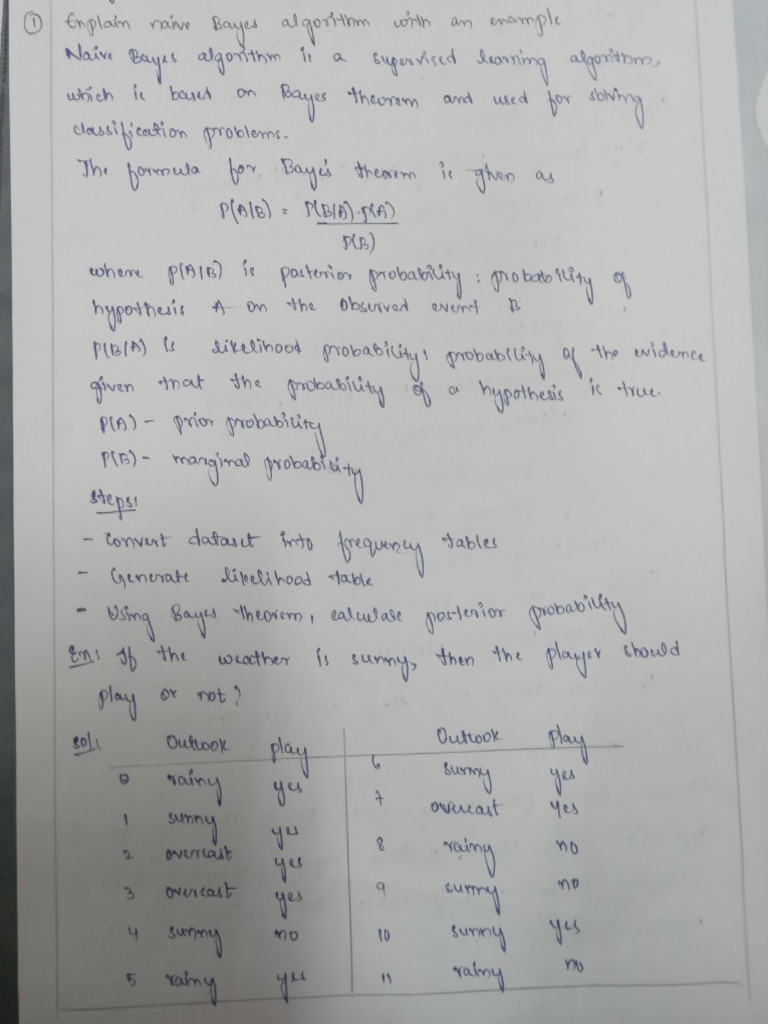 ① Explain naive Bayes algorithm with an example
Naive Bayes algorithm is a supervised learning algorithm,
which is based on Bayes theorem and used for solving
classification problems.
The formula for Baye's theorem is given as
P(A|B) = P(B|A).P(A)
P(B)
where P(A|B) is posterior probability : probability of
hypothesis A on the observed event B
P(B|A) is likelihood probability: probability of the evidence
given that the probability of a hypothesis is true.
P(A) - prior probability
P(B) - marginal probability
Steps:
- Convert dataset into frequency tables
- Generate likelihood table
- Using Bayes theorem, calculate posterior probability
Ex: If the weather is sunny, then the player should
play or not?
Sol: Outlook play Outlook play
0 rainy yes 6 sunny yes
1 sunny yes 7 overcast yes
2 overcast yes 8 rainy no
3 overcast yes 9 sunny no
4 sunny no 10 sunny yes
5 rainy yes 11 rainy no